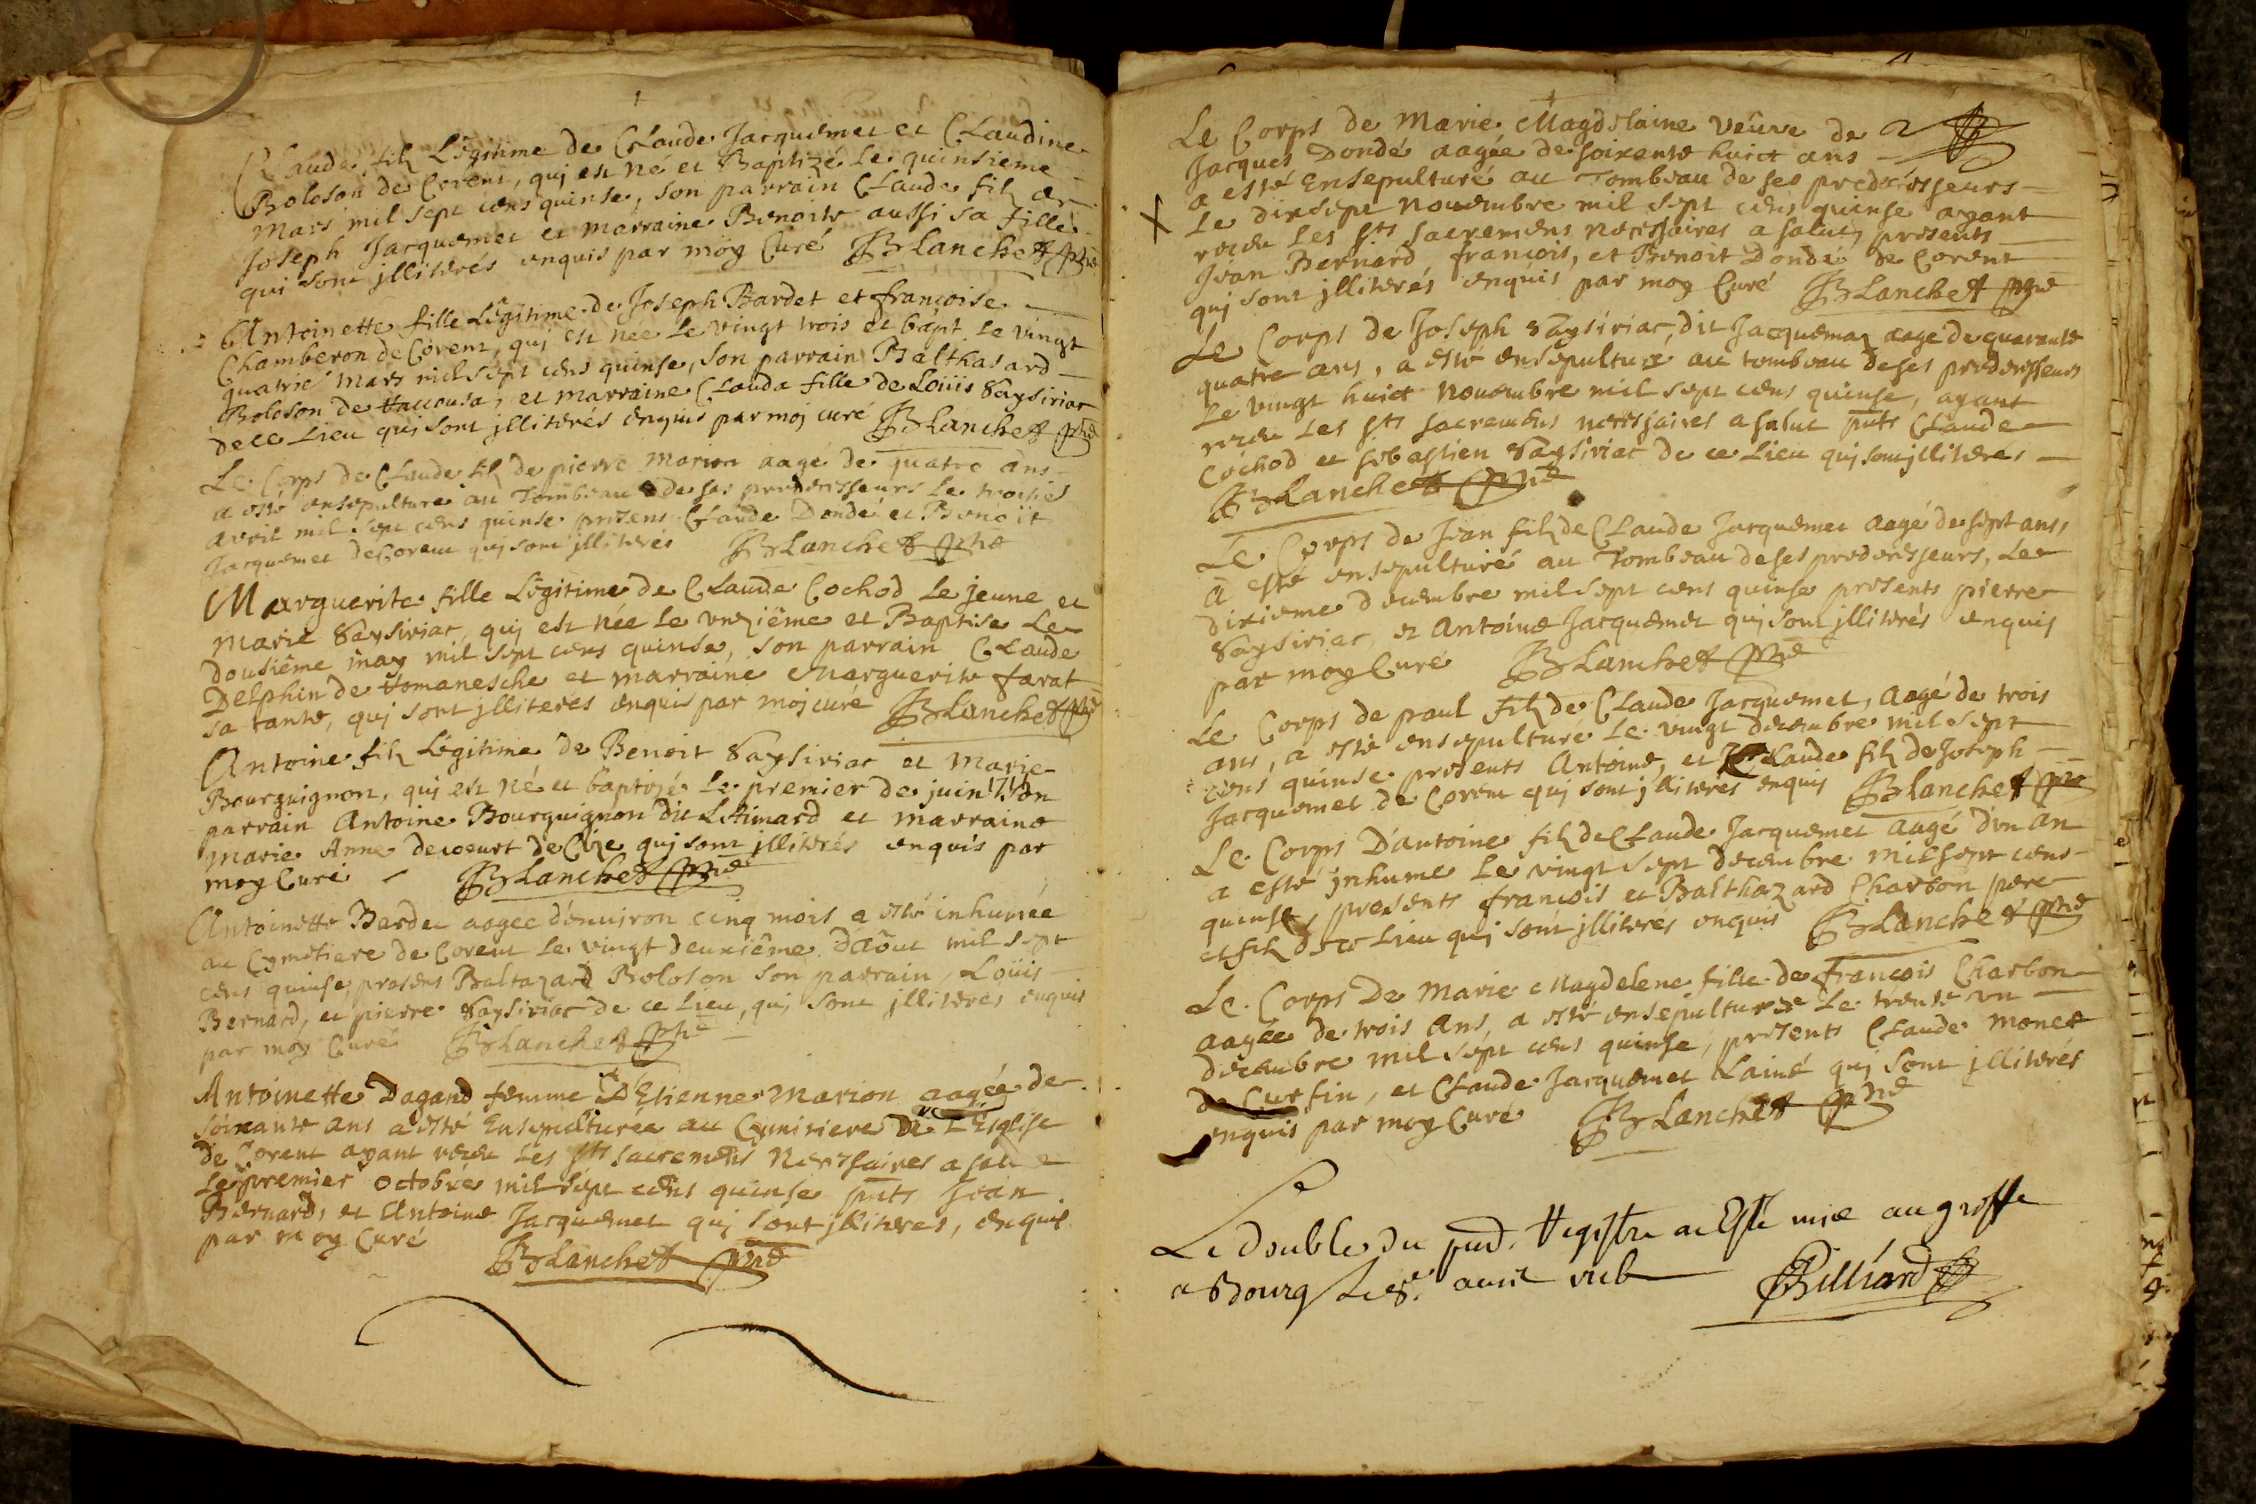 Claude filz Légitime de Claude Jacquemet et Claudine
Boloson de Corent, quj est né et Baptizé le quinsieme
Mars mil sept cens quinse, son parrain Claude filz de
Joseph Jacquemet et marraine Benoite aussi sa fille
qui sont jlliterés enquis par moy Curé JBLanchet ptre
Antoinette fille Légitime de Joseph Bardet et françoise
Chamberon de Corent, quj est née le vingt trois et bapt. le vingt
quatrie mars mil sept cens quinse, son parrain Balthasard
Boloson de, et marraine Clauda fille de Loüis Saysiriac
de ce Lieu quj sont jlliterés enquis par moj curé JBLanchet ptre
Le Corps de Claude filz de pierre Marion aagé de quatre ans
a esté ensepulture au Tombeau de ses predecesseurs le troisies
avril mil sept cens quinse presens Claude Dondé et Benoit
Jacquemet de Corent quj sont jlliterés JBLanchet ptre
Marguerite fille Légitime de Claude Cochod le jeune et
Marie Saysiriac, quj est née le unziême et Baptise le
dousiême may mil sept cens quinse, son parrain Claude
Delphin de Romanesche et marraine Marguerite farat
sa tante, quj sont jlliteres enquis par moj curé JBLanchet ptre
Antoine filz Légitime de Benoit Saysiriac et Marie
Bourguignon, quj est né et baptizé le premier de juin 1715 son
parrain Antoine Bourguignon dit Lestimard et marraine
Marie Anne decoeurt de Cize quj sont jlliterés enquis par
moy Curé JBLanchet ptre
Antoinette Bardet aagee d'environ cinq mois a esté inhumée
au Cymetiere de Corent le vingt deuxiême d'Aôut mil sept
cens quinse, presens Baltazard Boloson son parrain, Loüis
Bernard, et pierre Saysiriac de ce lieu, quj sont jlliteres enquis
par moy Curé JBLanchet ptre
Antoinette Dagand femme d'Etienne Marion aagée de
soixante ans a esté Ensepulturée au Cymitiere de l'Esglise
de Corent ayant receu les sts sacremens necessaires a salut
le premier octobre mil sept cens quinse pnts Jean
Bernard, et Antoine Jacquemet quj sont jlliteres, enquis
par moy Curé JBLanchet ptre
Le Corps de Marie Magdelaine veûve de
Jacques Dondé aagée de soixante huict ans
a esté Ensepulturé au Tombeau de ses predecesseurs
Le dix sept Novembre mil sept cens quinse ayant
receu les sts sacremens necessaires a salut, presents
Jean Bernard françois, et Benoit Dondé de Corent
quj sont jlliterés enquis par moy Curé JBLanchet ptre
Le Corps de Joseph Saysiriac, dit Jacquemaz aagé de quarante
quatre ans, a esté ensepulturé au tombeau de ses predecesseurs
Le vingt huict Novembre mil sept cens quinse, ayant
receu les sts sacremens necessaires a salut pnts Claude
Cochod et sebastien Saysiriac de ce lieu quj sont jlliteres
JBLanchet ptre
Le Corps de Jean filz de Claude Jacquemet aagé de sept ans,
a esté ensepulturé au Tombeau de ses predecesseurs, le
dixieme decembre mil sept cens quinse presents pierre
Saysiriac, et Antoine Jacquemet quj sont jlliterés enquis
par moy Curé JBLanchet ptre
Le Corps de paul filz de Claude Jacquemet, aagé de trois
ans, a esté ensepulture le vingt decembre mil sept
cens quinse presents Antoine, et Claude filz de Joseph
Jacquemet de Corent quj sont jlliteres enquis JBlanchet ptre
Le Corps D'antoine filz de Claude Jacquemet aagé d'un an
a esté jnhume le vingt sept decembre mil sept cens
quinse, presents francois et Balthazard Charbon pere
et filz de ce lieu quj sont jlliteres enquis JBLanchet ptre
Le Corps De Marie Magdelene fille de François Charbon
aagée de trois ans, a esté ensepulturée le trente un
decembre mil sept cens quinse, présents Claude Monet
de Curfin, et Claude Jacquemet Lainé quj sont jlliterés
enquis par moy Curé JBLanchet ptre
Le double du pnt. Registre a Esté mis au greffe
a Bourg Le 8e. avril
Billiard